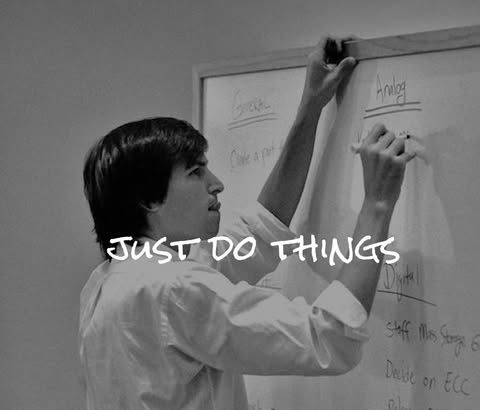 GENERAL
Analog
Create a part
JUST DO THINGS
Digital
Staff Mass Storage
Decide on ECC